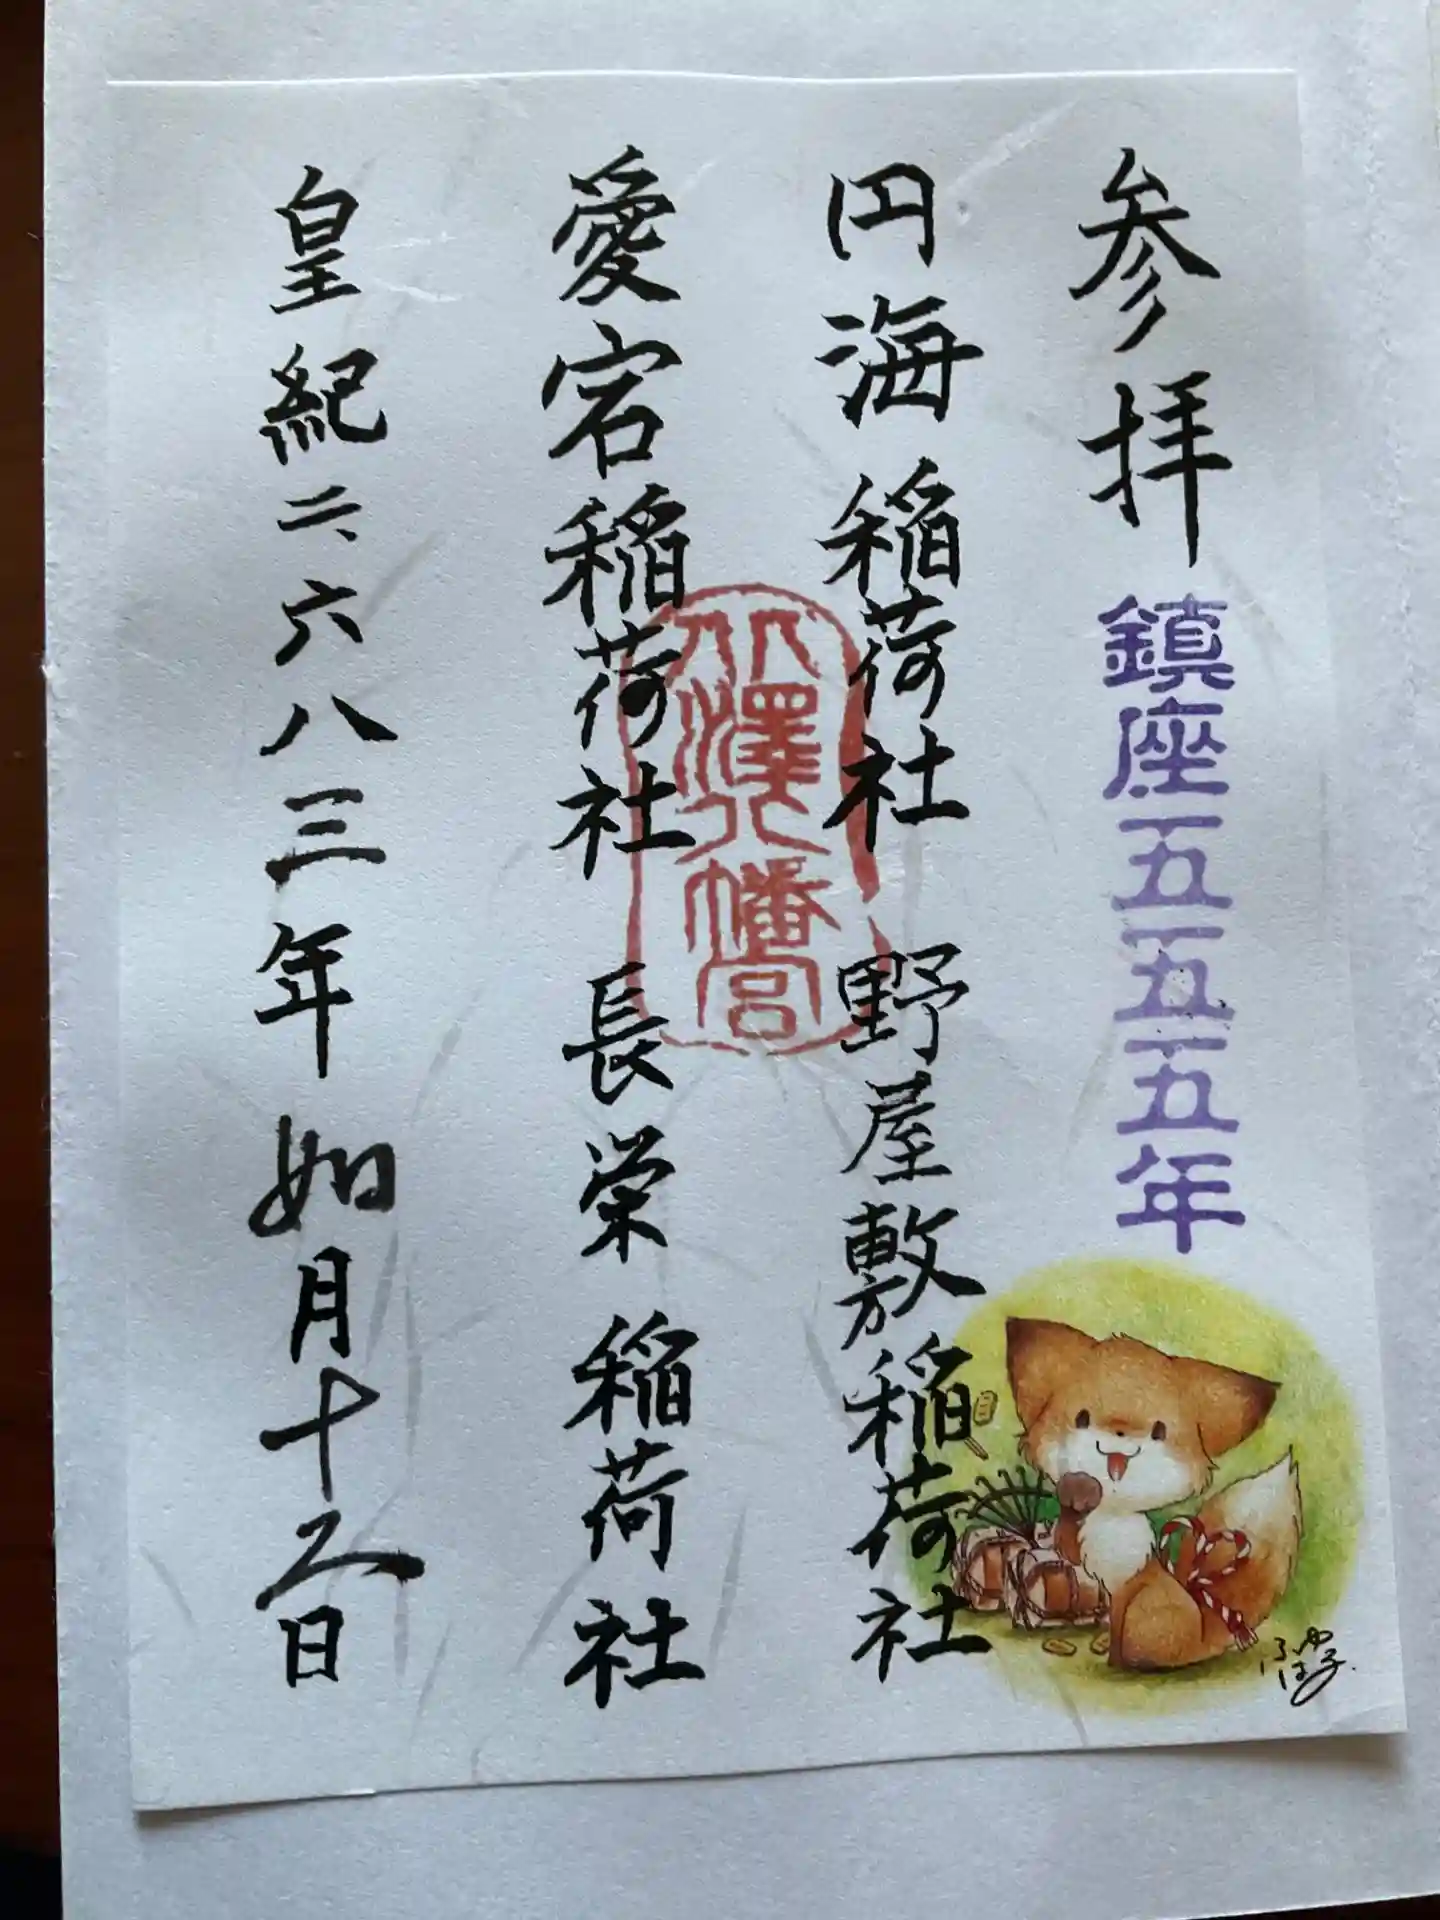 参拝
鎮座五五五年
円海稲荷社 野屋敷稲荷社
愛宕稲荷社 長栄稲荷社
皇紀二六八三年如月十二日
八幡宮
ふゆほ子